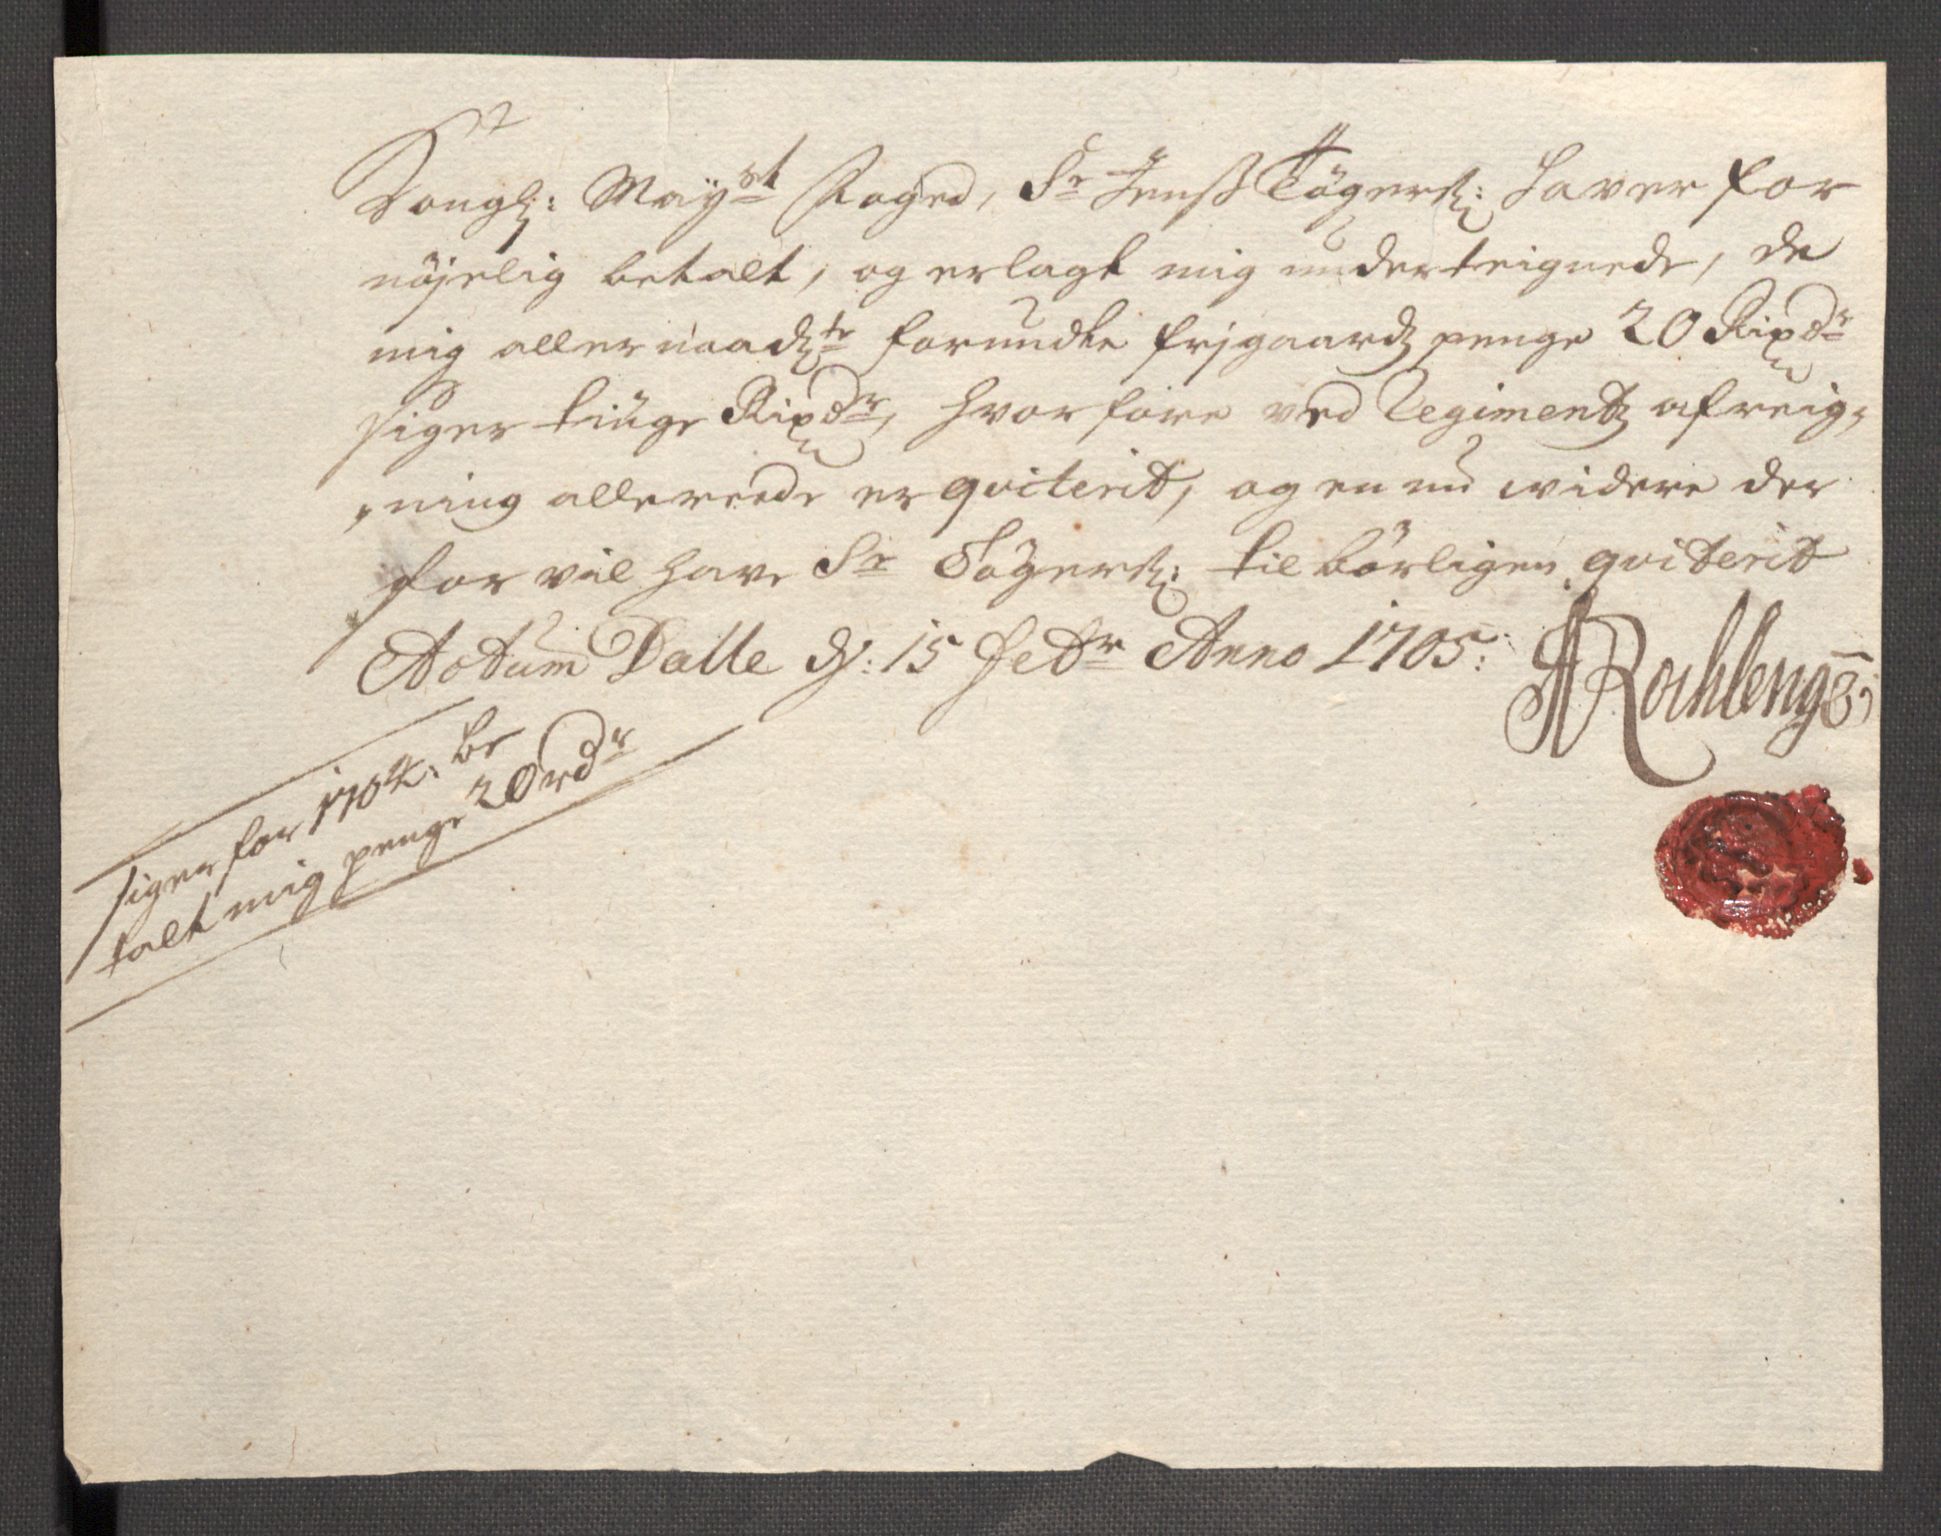 Kongl: Mayst Foged, Sr Jenß Tøgers: haver for
nøjelig betalt, og erlagt mig underteignede, de
mig allernaadste forundte frjgaards penge 20 Rixdr
siger tiuge Rixdr, hvorfore ved Regiments afreig,
,ning allereede er qviterit, og en nu widere der
for vil have Sr Tøgers: tilbørligen qviterit
Actum Dalle d: 15 febr Anno 1705:
siger for 1704: be
talt mig penge 20 rdr